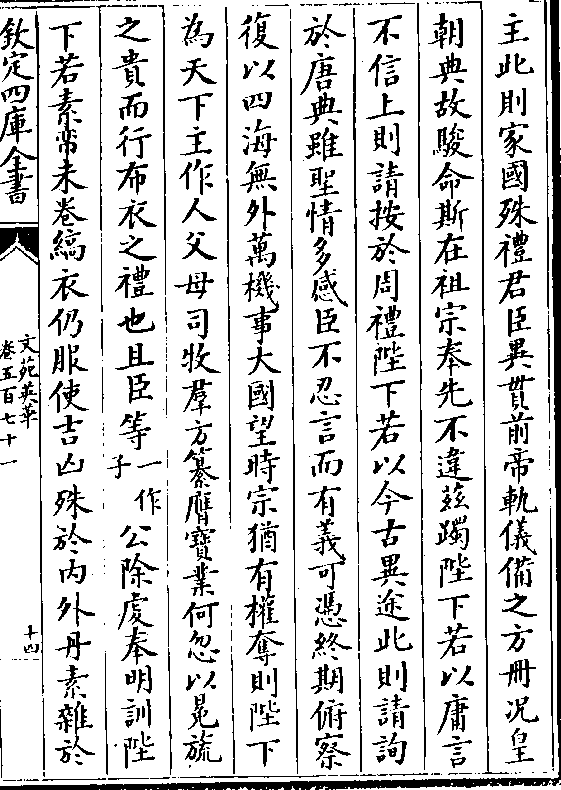 主此則家國殊禮君臣異貫前帝軌儀備之方冊况皇
朝典故駿命斯在祖宗奉先不違兹躅陛下若以庸言
不信上則請按於周禮陛下若以今古異途此則請詢
於唐典雖聖情多感臣不忍言而有義可憑終期俯察
復以四海無外萬機事大國望時宗猶有權奪則陛下
為天下主作人父母司牧羣方纂膺寳業何忽以冕旒
之貴而行布衣之禮也且臣等一作子公除虔奉明訓陛
下若素帟未卷縞衣仍服使吉凶殊於内外丹素雜於
欽定四庫全書
文苑英華
卷五百七十一
十四